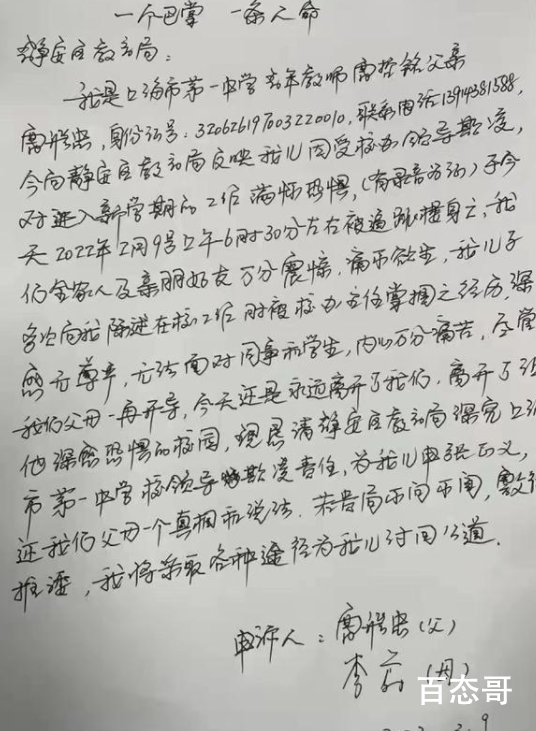 一个巴掌 一条人命
静安区教育局：
我是上海市第一中学青年教师 父亲
身份证号：320626197003220010，联系电话13914381588，
今向静安区教育局反映我儿因受校办领导欺凌，
对进入新学期的工作满怀恐惧，(有录音为证)于今
天2022年2月9号上午6时30分左右被逼跳楼身亡，我
们全家人及亲朋好友万分震惊，痛不欲生，我儿子
多次向我陈述在校工作时被校办主任掌掴之经历，深
感无尊严，无法面对同事和学生，内心万分痛苦，尽管
我们父母一再开导，今天还是永远离开了我们，离开了让
他深感恐惧的校园，现恳请静安区教育局深究上海
市第一中学校领导欺凌责任，为我儿申张正义，
还我们父母一个真相和说法．若贵局不问不闻，敷衍
推诿，我将采取各种途径为我儿讨回公道．
申诉人： (父)
李 (母)
百态哥